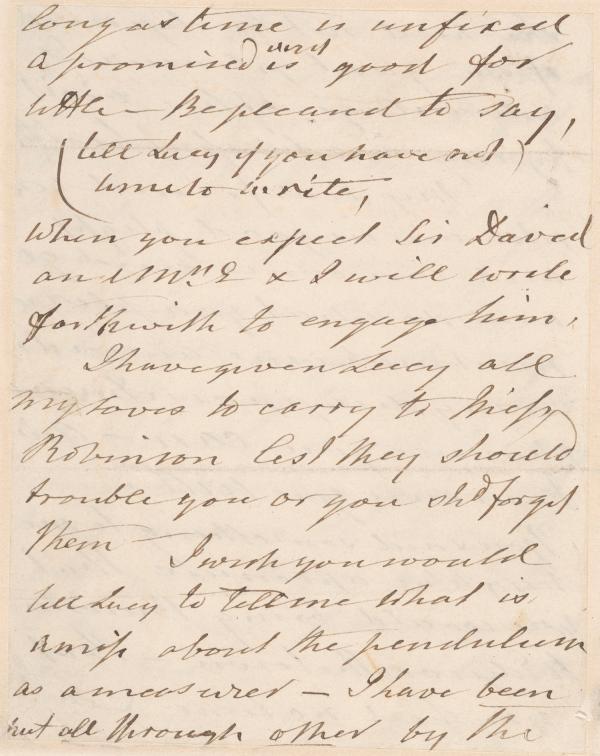 long as time is unfixed
a promised visit is good for
little — Be pleased to say,
(tell Lucy if you have not)
time to write,
when you expect Sir David
and Mrs. E & I will write
forthwith to engage him.
I have given Lucy all
my loves to carry to Miss
Robinson lest they should
trouble you or you shd forget
them — I wish you would
tell Lucy to tell me what is
amiss about the pendulum
as a measurer — I have been
put all through other by the